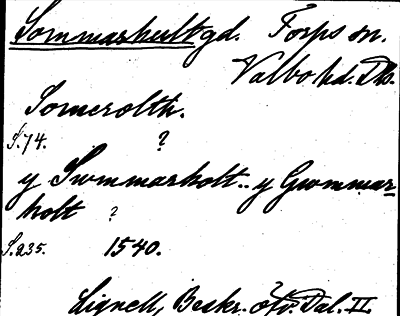 Sommarhult gd. Torps sn.
Valbo hd. Ds.
Somerolth.
S. 74. ?
y Swmmarholt.. y Gwmmar-
holt ?
S. 235. 1540.
Lignell, Beskr. ö. Dal. II.